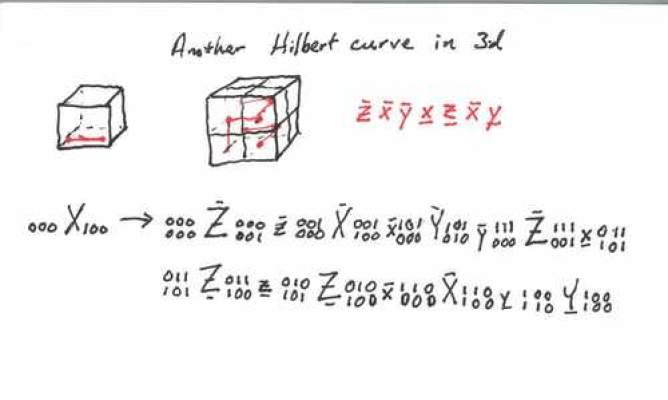 Another Hilbert curve in 3d
z̄ x̄ ȳ x̲ z̲ x̄ y̲
000 X 100 → 000 000 Z̄ 000 001 z̄ 001 000 X̄ 001 100 x̄ 101 000 Ȳ 101 010 ȳ 111 000 Z̄ 111 001 x̲ 011 101
011 101 Z̲ 011 100 z̲ 010 101 Z̲ 010 100 x̄ 110 000 X̄ 110 100 y̲ 100 110 Y̲ 100 100